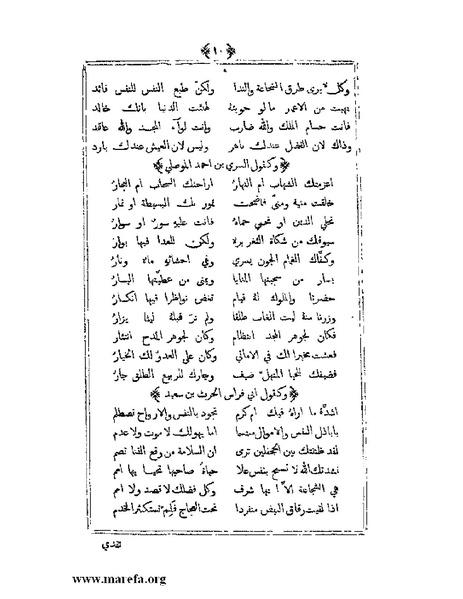 ﴿ ١٠ ﴾
وكل يرى طرق الشجاعة والندا ولكنّ طبع النفس للنفس قائد
نهبت من الاعمار مالو حويته لهنئت الدنيا بانك خالد
فانت حسام الملك والله ضارب وانت لوآء المجد والله عاقد
وذاك لان الفضل عندك باهر وليس لان العيش عندك بارد
﴿ وكقول السري بن احمد الموصلي ﴾
اعزمتك الشهاب ام النهار اراحتك السحاب ام البحار
خلقت منية ومنىً فاضحت تمور بك البسيطة او تمار
تحلي الدين او تحمي حماهُ فانت عليهِ سورٌ او سوارُ
سيوفك من شكاة الثغر برء ولكن للعدا فيها بوارُ
وكفّاك الغمام الجون يسري وفي احشائهِ ماء ونارُ
يسار من سجيتها المنايا ويمنى من عطيتها اليسارُ
حضرنا والملوك لهُ قيام تغض نواظرا فيها انكسارُ
وزرنا منهُ ليث الغاب طلقا ولم نرَ قبلهُ ليثا يزارُ
فكان لجوهر المجد انتظام وكان لجوهر المدح انتثار
فعشت مخيرا لك في الاماني وكان على العدو لك الخيارُ
فضيفك للحيا المنهلّ ضيف وجارك للربيع الطلق جارُ
﴿ وكقول ابي فراس الحرث بن سعيد ﴾
اشدّة ما اراهُ فيك ام كرم تجود بالنفس والارواح تصطلم
يا باذل النفس والاموال مبتسما اما يهولك لا موت ولا عدم
لقد ظننتك بين الجحفلين ترى ان السلامة من وقع القنا تصم
نشدتك الله لا تسمح بنفس علا حياةُ صاحبها تحيا بها امم
هي الشجاعة الاّ بها شرف وكل فضلك لا قصد ولا امم
اذا لقيت رقاق البيض منفردا تحت العجاج فلِم تستكثر الخدم
تفدي
www.marefa.org